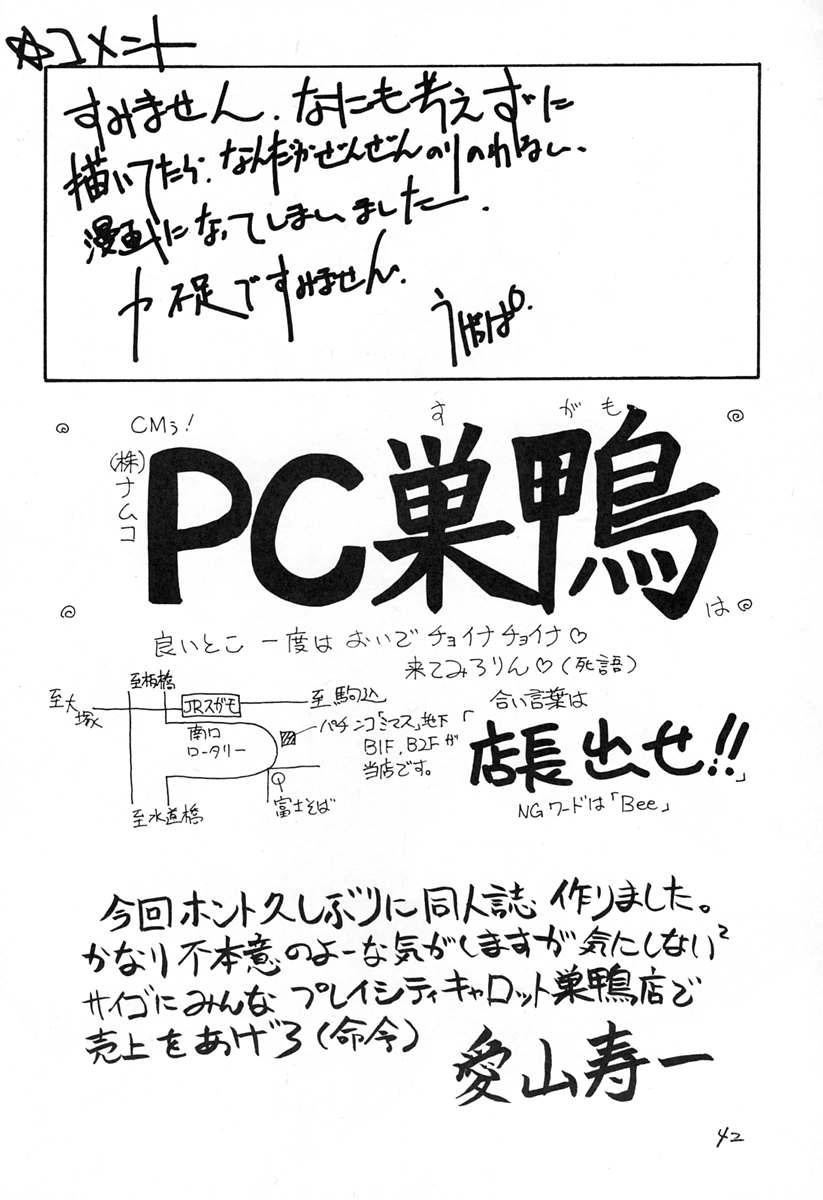 ☆コメント
すみません．なにも考えずに
描いてたら．なんだかぜんぜんのりのわるい．
漫画になってしまいました．
力不足ですみません．
CMぅ!
(株)ナムコ
すがも
PC巣鴨
は
良いとこ 一度は おいで チョイナチョイナ♡
来てみろりん♡(死語)
至大塚
至板橋
JRスガも
至 駒込
南口
ロータリー
パチンコ「ミマス」地下
B1F, B2Fが
当店です。
至水道橋
富士そば
合い言葉は
「店長出せ!!」
NGワードは「Bee」
今回ホント久しぶりに同人誌 作りました。
かなり不本意のよーな気がしますが気にしない²
サイゴにみんな プレイシティキャロット巣鴨店で
売上をあげろ(命令)
愛山寿一
42